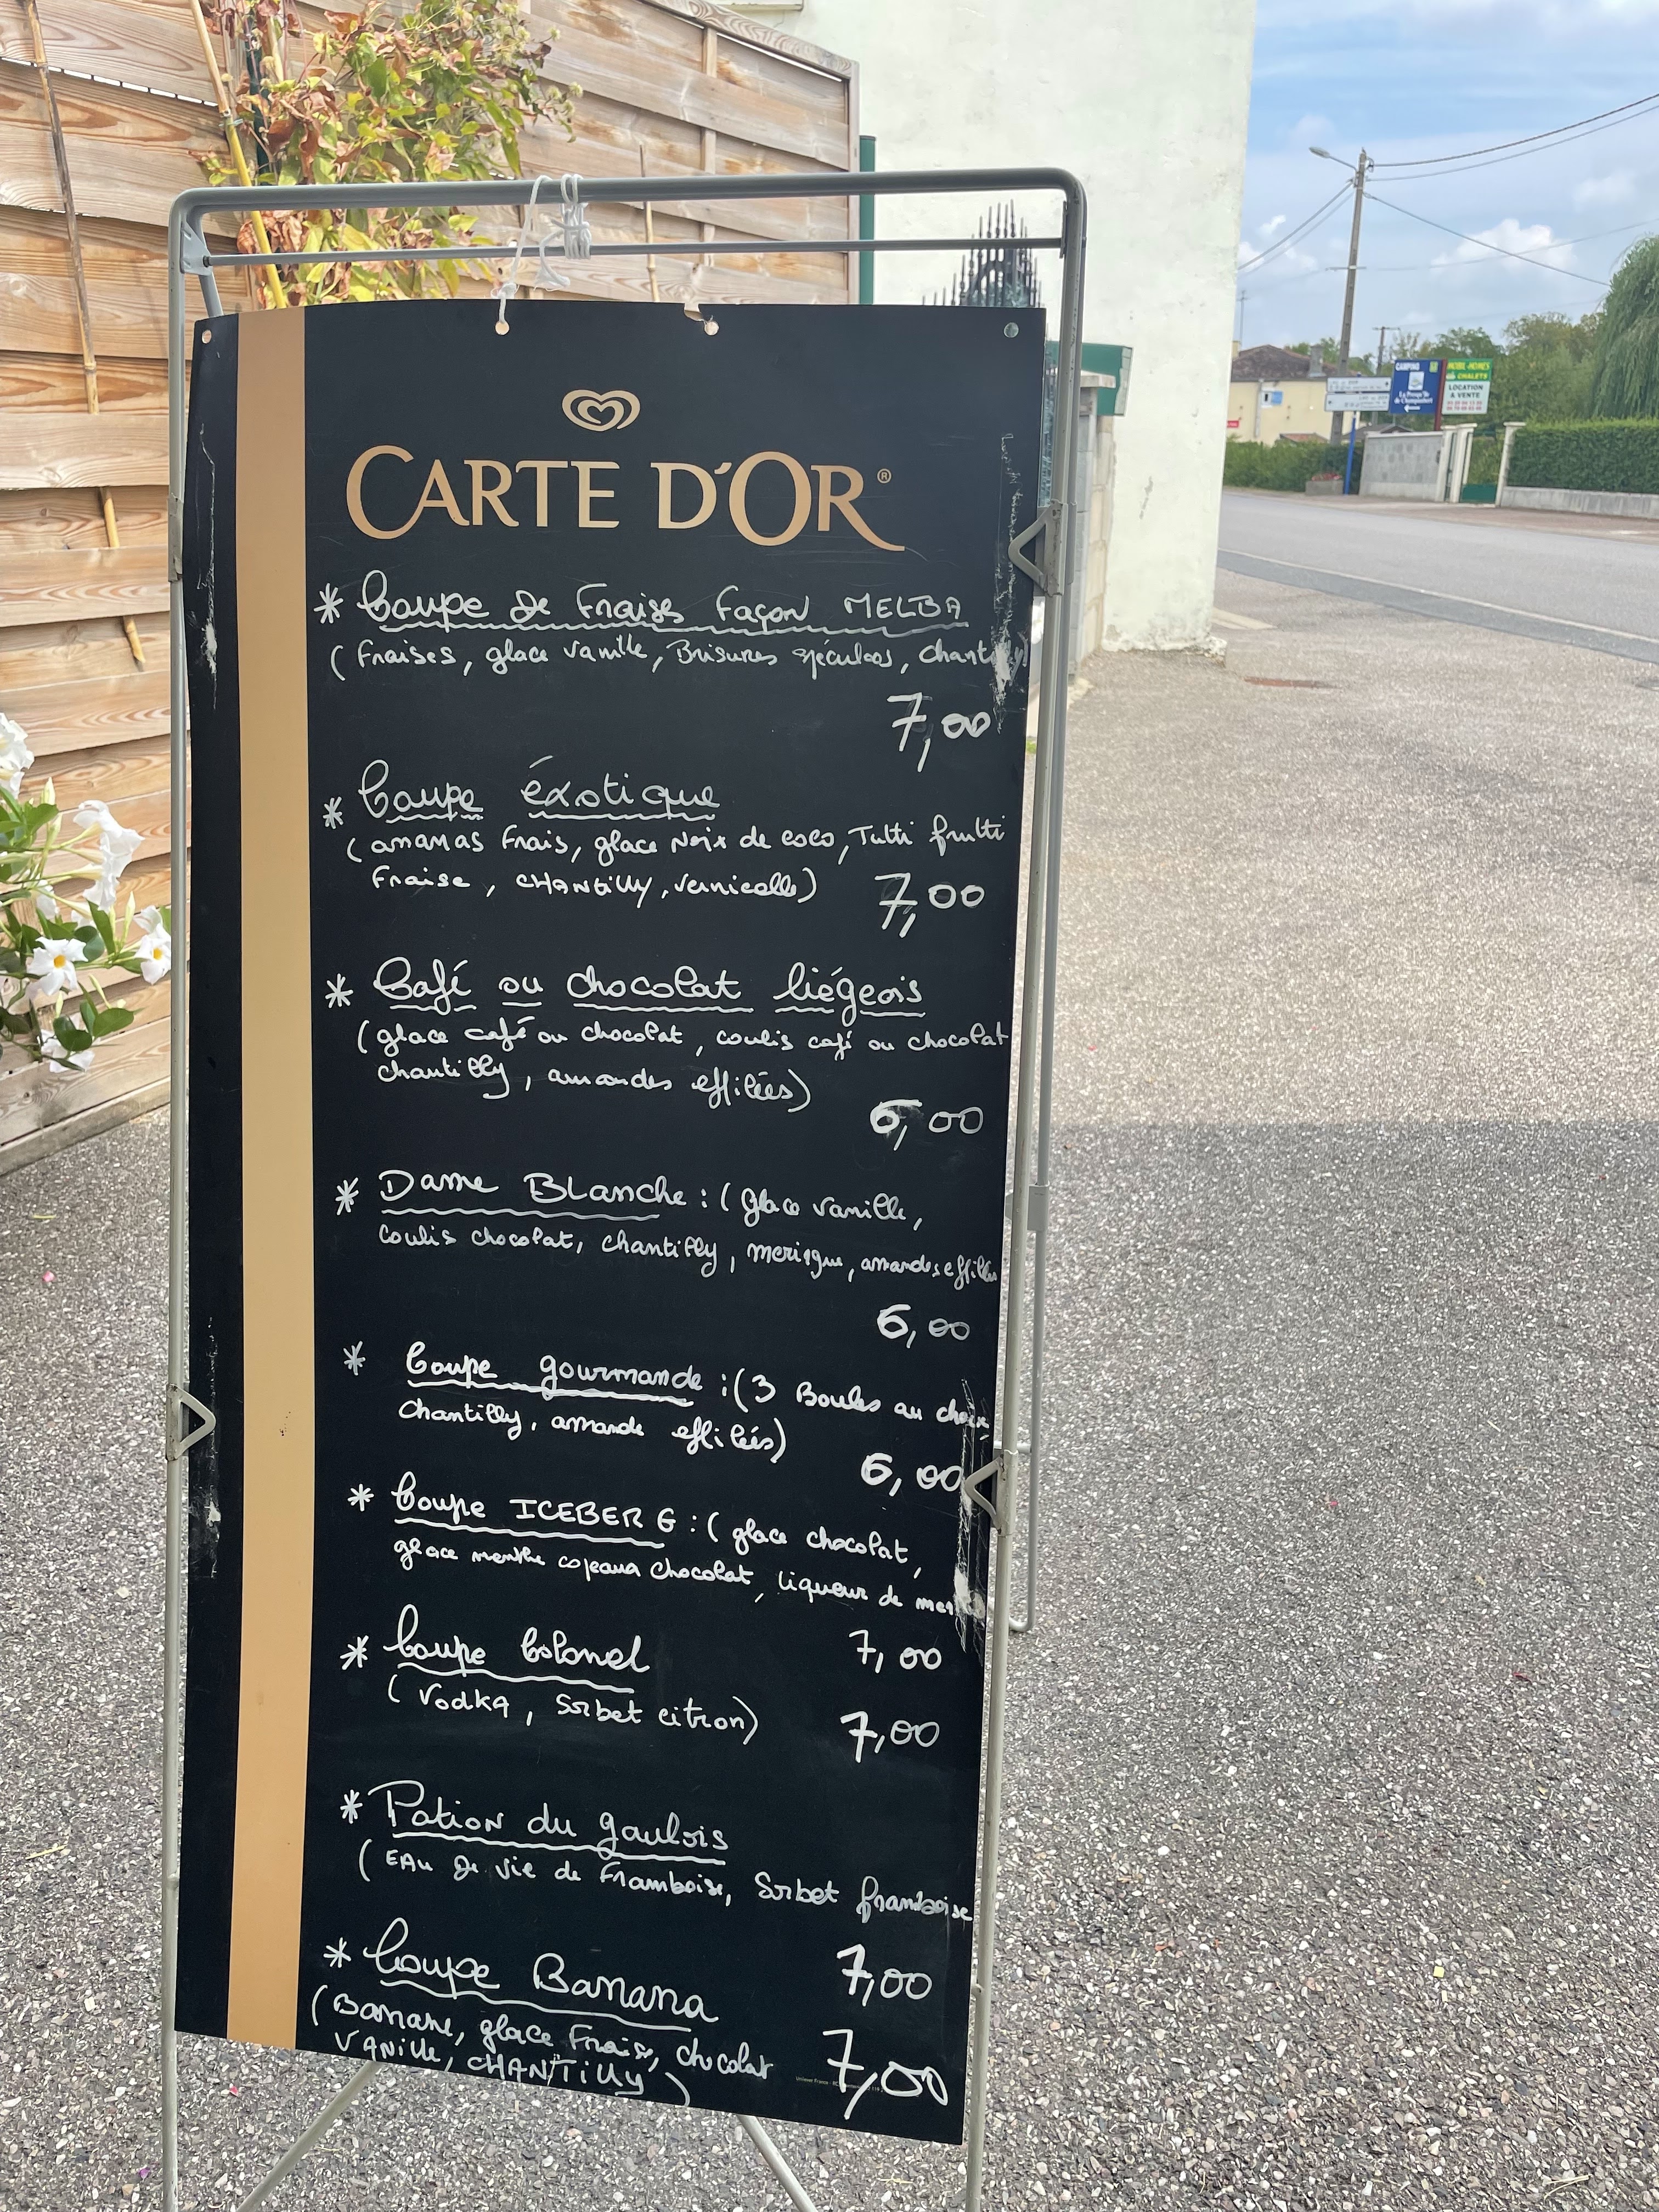 CARTE D'OR®
* Coupe de Fraises Façon MELBA
(Fraises, glace vanille, Brisures spéculoos, chantilly)
7,00
* Coupe éxotique
(ananas Frais, glace Noix de coco, Tutti frutti
Fraise, CHANTILLY, vermicelle) 7,00
* Café ou chocolat liégeois
(glace café ou chocolat, coulis café ou chocolat
chantilly, amandes effilées)
6,00
* Dame Blanche : (glace vanille,
coulis chocolat, chantilly, meringue, amandes effilées
6,00
* Coupe gourmande : (3 Boules au choix,
chantilly, amande effilées)
6,00
* Coupe ICEBERG : (glace chocolat,
glace menthe copeaux chocolat, liqueur de menthe
7,00
* Coupe Colonel
(Vodka, Sorbet citron) 7,00
* Potion du gaulois
(EAu de vie de Framboise, Sorbet framboise
7,00
* Coupe Banana
(Banane, glace Fraise, chocolat
VANille, CHANTilly) 7,00
CAMPING
La Presqu'île
de Champaubert
MOBIL-HOMES
CHALETS
LOCATION
& VENTE